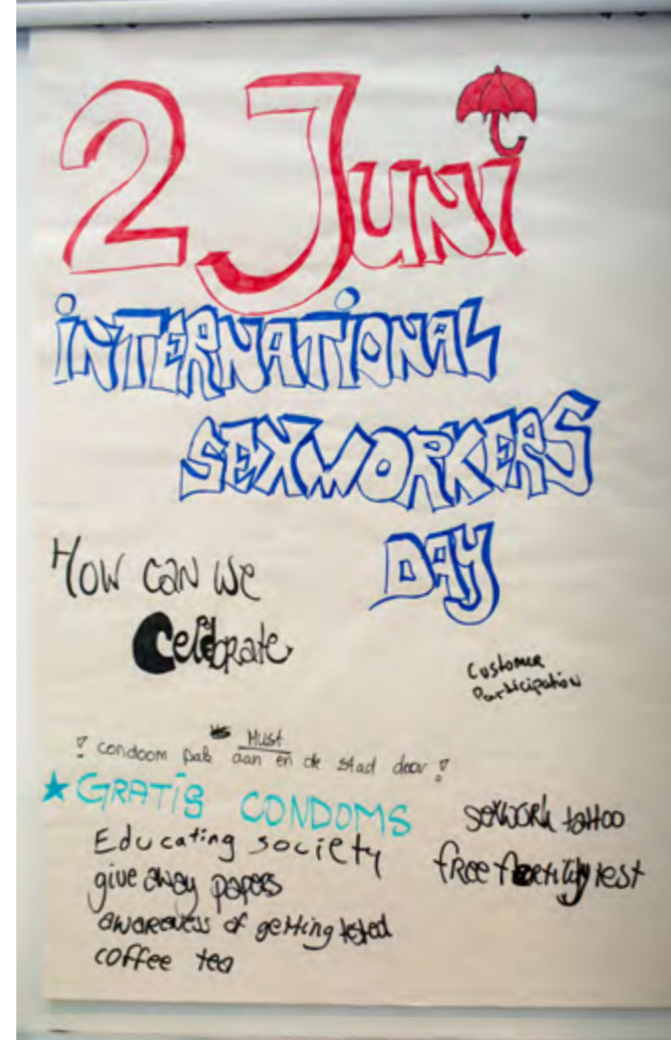 2 Juni
INTERNATIONAL
SEXWORKERS
DAY
How can we
Celebrate
Customer
Participation
Must
! condoom pak aan en de stad door !
GRATIS CONDOMS
Educating society
give away papers
awareness of getting tested
coffee tea
sexwork tattoo
free fertility test